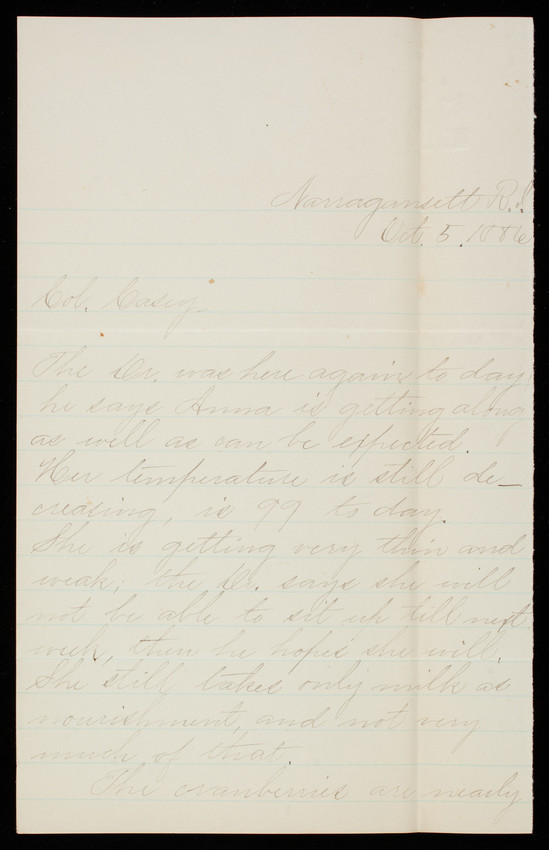 Narragansett R.I.
Oct. 5. 1886
Col. Casey-
The Dr. was here again to day,
he says Anna is getting along
as well as can be expected.
Her temperature is still de-
creasing, is 99 to day.
She is getting very thin and
weak; the Dr. says she will
not be able to sit up till next
week, then he hopes she will.
She still takes only milk as
nourishment, and not very
much of that.
The cranberries are nearly